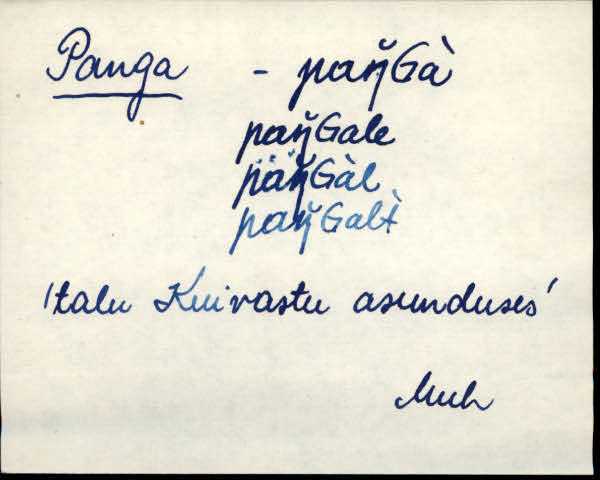 Panga - paŋ̆Gà
paŋ̆Gale
pa̤ŋ̆Gàl
paŋ̆Galt̀
'talu Kuivastu asunduses'
Muh